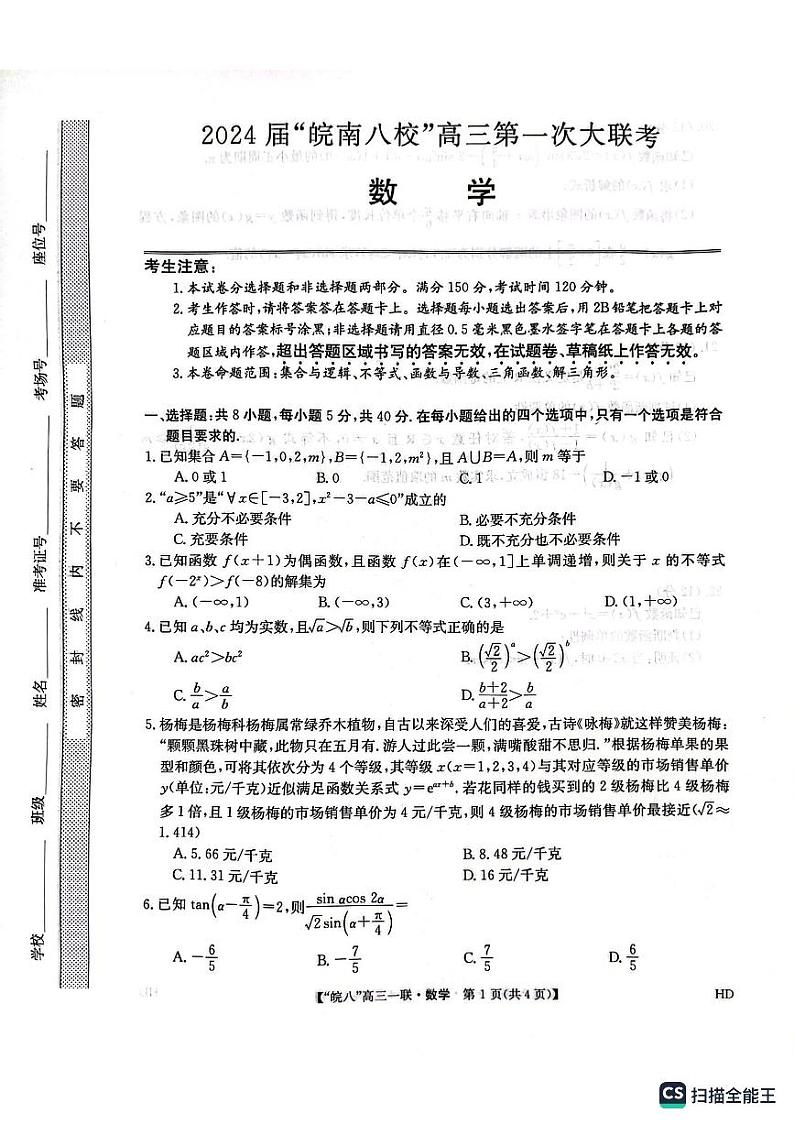 2024 届“皖南八校”高三第一次大联考
数 学
考生注意：
1. 本试卷分选择题和非选择题两部分。满分 150 分，考试时间 120 分钟。
2. 考生作答时，请将答案答在答题卡上。选择题每小题选出答案后，用 2B 铅笔把答题卡上对
应题目的答案标号涂黑；非选择题请用直径 0.5 毫米黑色墨水签字笔在答题卡上各题的答
题区域内作答，超出答题区域书写的答案无效，在试题卷、草稿纸上作答无效。
3. 本卷命题范围：集合与逻辑、不等式、函数与导数、三角函数、解三角形。
一、选择题：共 8 小题，每小题 5 分，共 40 分. 在每小题给出的四个选项中，只有一个选项是符合
题目要求的.
1. 已知集合 A={-1,0,2,m}，B={-1,2,m²}，且 A∪B=A，则 m 等于
A. 0 或 1 B. 0 C. 1 D. -1 或 0
2. “a≥5”是“∀x∈[-3,2]，x²-3-a≤0”成立的
A. 充分不必要条件 B. 必要不充分条件
C. 充要条件 D. 既不充分也不必要条件
3. 已知函数 f(x+1)为偶函数，且函数 f(x)在(-∞,1]上单调递增，则关于 x 的不等式
f(-2ˣ)>f(-8)的解集为
A. (-∞,1) B. (-∞,3) C. (3,+∞) D. (1,+∞)
4. 已知 a、b、c 均为实数，且√a>√b，则下列不等式正确的是
A. ac²>bc² B. (√2/2)^a>(√2/2)^b
C. b/a>a/b D. (b+2)/(a+2)>b/a
5. 杨梅是杨梅科杨梅属常绿乔木植物，自古以来深受人们的喜爱，古诗《咏梅》就这样赞美杨梅：
“颗颗黑珠树中藏，此物只在五月有. 游人过此尝一颗，满嘴酸甜不思归.”根据杨梅单果的果
型和颜色，可将其依次分为 4 个等级，其等级 x(x=1,2,3,4)与其对应等级的市场销售单价
y(单位：元/千克)近似满足函数关系式 y=e^(ax+b). 若花同样的钱买到的 2 级杨梅比 4 级杨梅
多 1 倍，且 1 级杨梅的市场销售单价为 4 元/千克，则 4 级杨梅的市场销售单价最接近(√2≈
1.414)
A. 5.66 元/千克 B. 8.48 元/千克
C. 11.31 元/千克 D. 16 元/千克
6. 已知 tan(α-π/4)=2，则 sin αcos 2α/(√2sin(α+π/4))=
A. -6/5 B. -7/5 C. 7/5 D. 6/5
【“皖八”高三一联·数学 第 1 页(共 4 页)】 HD
学校 班级 姓名 准考证号 考场号 座位号
密 封 线 内 不 要 答 题
CS 扫描全能王